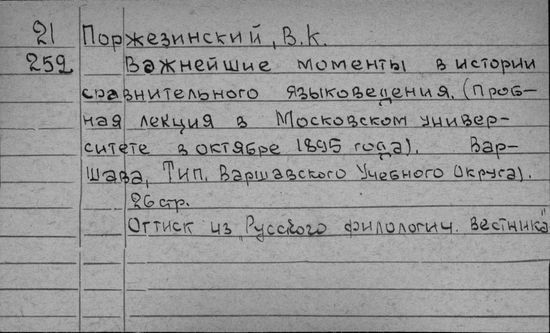 21 Поржезинский, В.К.
259 Важнейшие моменты в истории
сравнительного языковедения. (Проб-
ная лекция в Московском универ-
ситете в октябре 1895 года). Вар-
шава, Тип. Варшавского Учебного Округа).
26 стр.
Оттиск из "Русского филологич. Вестника"